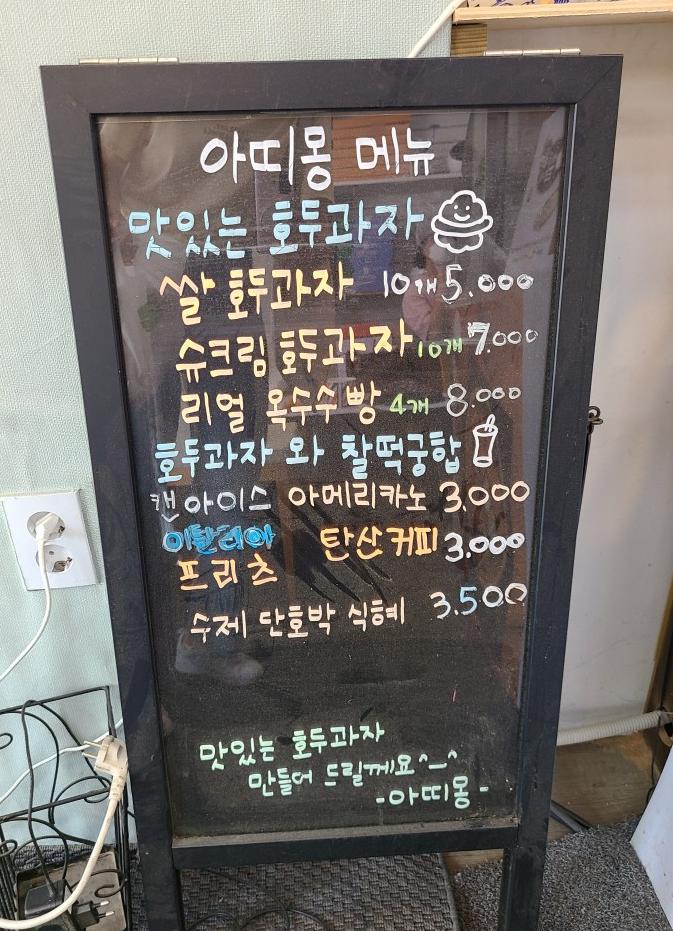 아띠몽 메뉴
맛있는 호두과자
쌀 호두과자 10개 5.000
슈크림 호두과자 10개 7.000
리얼 옥수수빵 4개 8.000
호두과자 와 찰떡궁합
캔아이스 아메리카노 3.000
이탈리아 탄산커피 3.000
프리츠
수제 단호박 식혜 3.500
맛있는 호두과자
만들어 드릴께요^_^
-아띠몽-